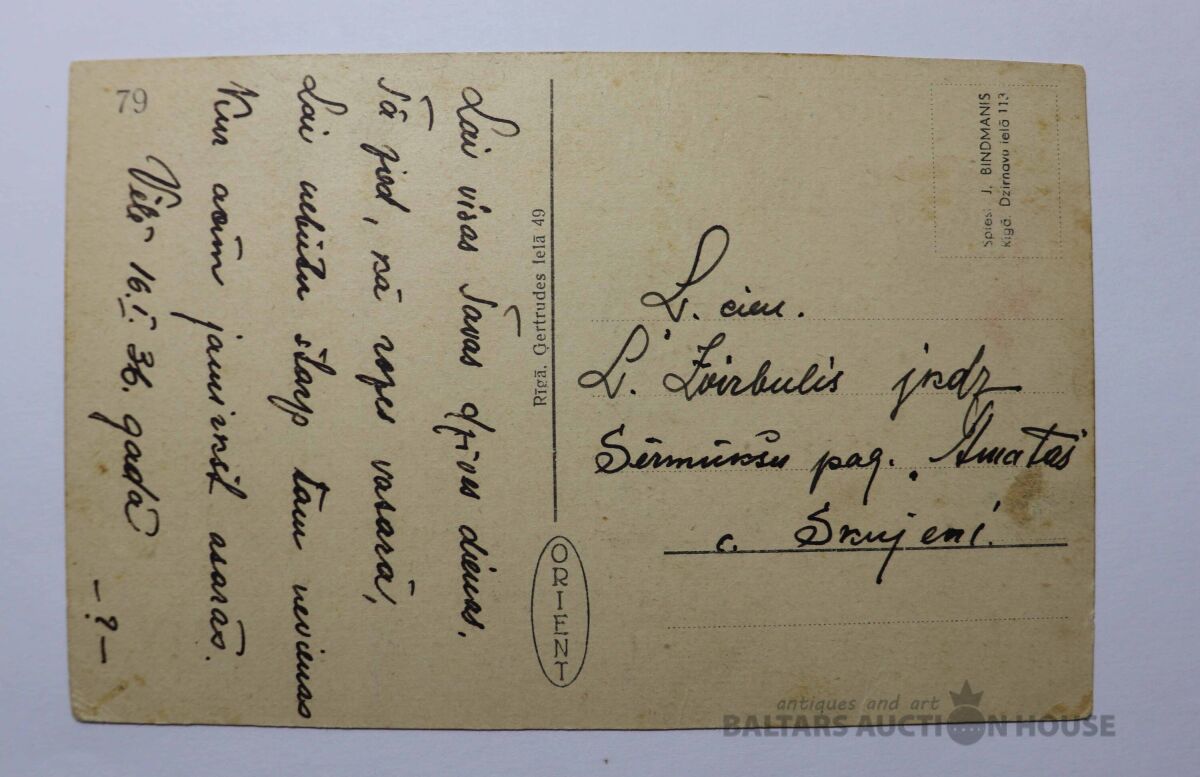 79
Lai visas Tavas dzīves dienas,
Tā zied, kā rozes vasarā,
Lai nebūtu starp tām nevienas
Kur acīm jāmirkst asarās.
16.I. 36. gadā
– ? –
Rīgā, Gertrudes ielā 49
ORIENT
Spiest J. BINDMANIS
Rīgā, Dzirnavu ielā 113
L. cien.
L. Zvirbulis jkdz
Sērmūkšu pag. "Amatas"
c. Skujeni.
antiques and art
BALTARS AUCTION HOUSE